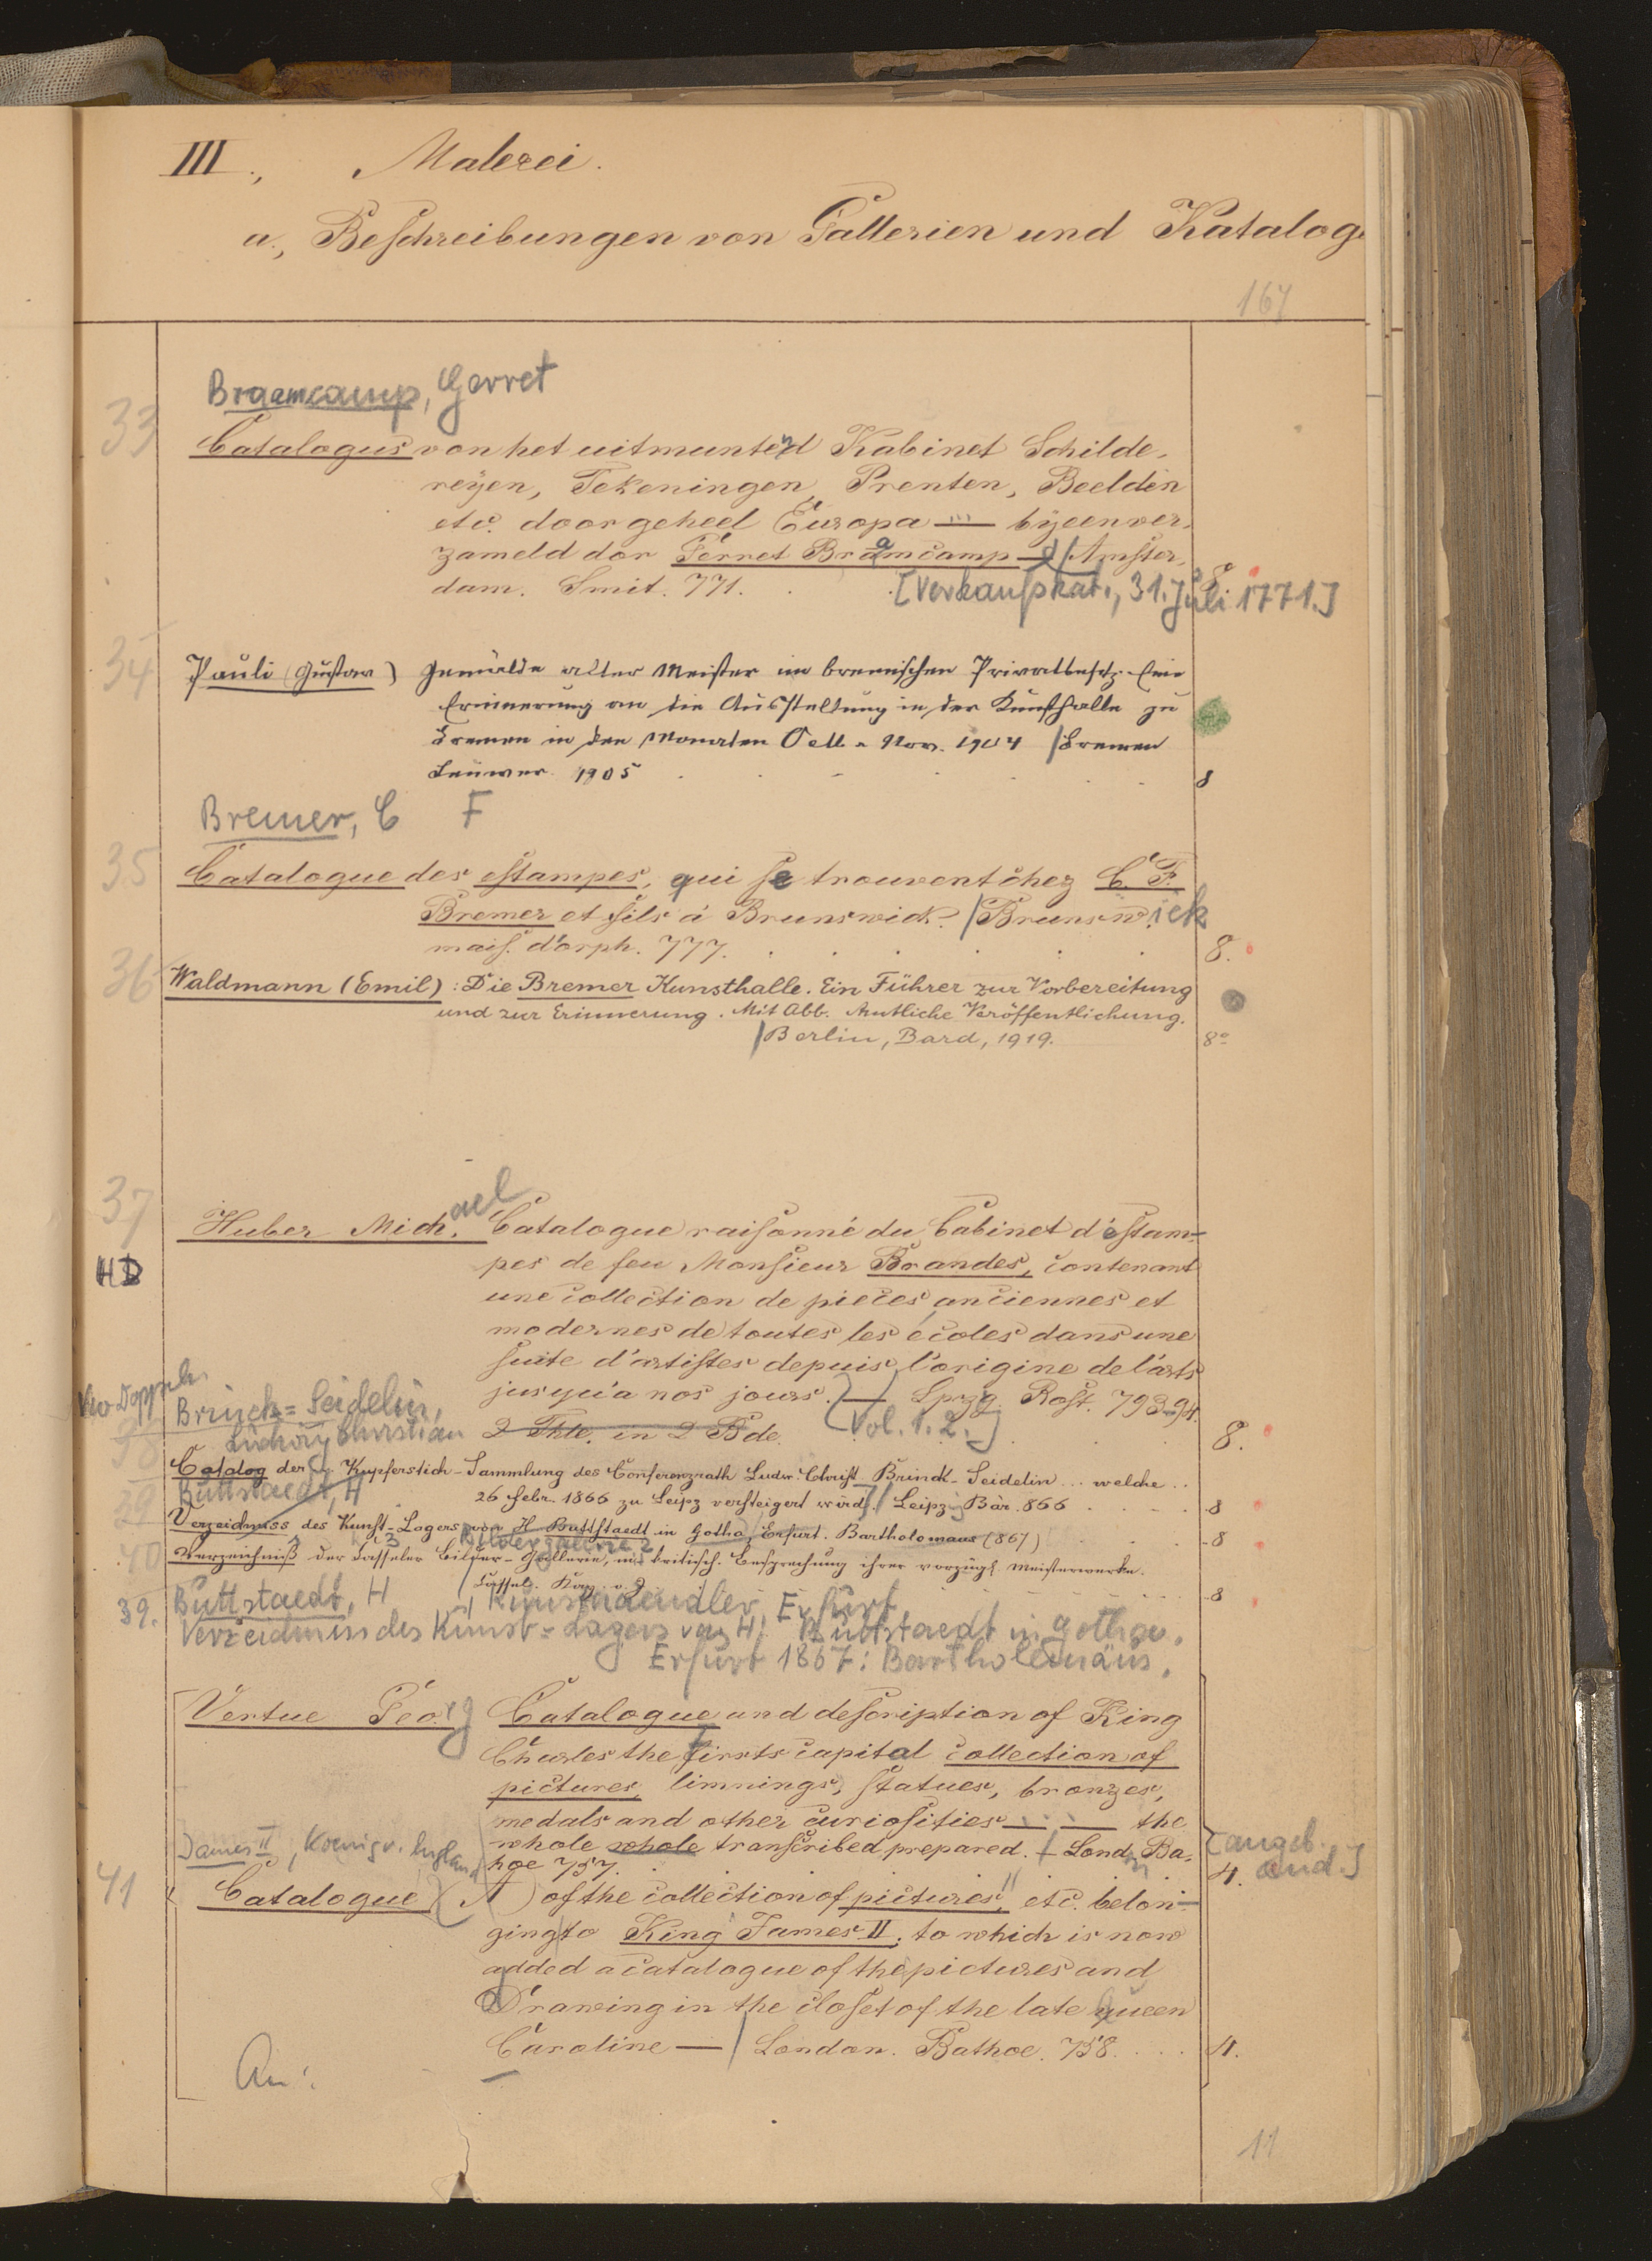 III., Malerei.
a., Beschreibungen von Gallerien und Kataloge
167
Braamcamp, Gerret
33
Catalogus van het uitmuntend Kabinet Schilde-
reÿen, Tekeningen, Prenten, Beelden
etc. door geheel Europa — bÿeenver-
zameld dor Gerret Braamcamp — / Amster-
dam. Smit. 771. 8
[Verkaufskat., 31. Juli 1771.]
34
Pauli (Gustav) Gemälde alter Meister im bremischen Privatbesitz. Eine
Erinnerung an die Ausstellung in der Kunsthalle zu
Bremen in den Monaten Oct. u. Nov. 1904 / Bremen
Leuwer. 1905 8
Bremer, C F
35
Catalogue des estampes, qui se trouvent chez C. F.
Bremer et fils à Brunswick. / Brunswick
mais. d'orph. 777. 8.
36
Waldmann (Emil): Die Bremer Kunsthalle. Ein Führer zur Vorbereitung
und zur Erinnerung. Mit Abb. Amtliche Veröffentlichung.
/ Berlin, Bard, 1919. 8°
37
Huber Michael Catalogue raisonné du Cabinet d'estam-
HD
pes de feu Monsieur Brandes, contenant
une collection de pieces anciennes et
modernes de toutes les écoles dans une
suite d'artistes depuis l'origine de l'arts
jusqu'a nos jours. — Lpzg. Rost. 793-94.
2 Thle. in 2 Bde. [Vol. 1. 2.] 8.
Brinck-Seidelin,
Ludwig Christian
38
Catalog der Kupferstich-Sammlung des Conferenzrath Ludw. Christ Brinck-Seidelin ... welche ..
26 Febr. 1866 zu Leipz versteigert wird. / Leipzig Bär. 866 8
Buttstaedt, H
39
Verzeichniss des Kunst-Lagers von H Buttstaedt in Gotha / Erfurt. Bartholomäus (867) 8
Bildergalerie
40
Verzeichniß der Casseler Bilder-Gallerie, mit kritisch. Besprechung ihrer vorzügl. Meisterwerke.
/ Cassel. Kay. o. J. 8
39. Buttstaedt, H , Kunsthaendler, Erfurt
Verzeichniss des Kunst-Lagers von H. Buttstaedt in Gotha.
Erfurt 1867: Bartholomäus.
Vertue Georg Catalogue and description of King
Charles the firsts capital collection of
pictures, limnings, statues, bronzes,
medals and other curiosities — — the
whole whole transcribed prepared. / London Ba-
hoe 757. 4.
[angeb.
and.]
James II, Koenig v. England
41
Catalogue (A) of the collection of pictures, etc. belon-
ging to King James II; to which is now
added a catalogue of the pictures and
Drawing in the closet of the late queen
Caroline — / London. Bathoe. 758. 4.
An:
11